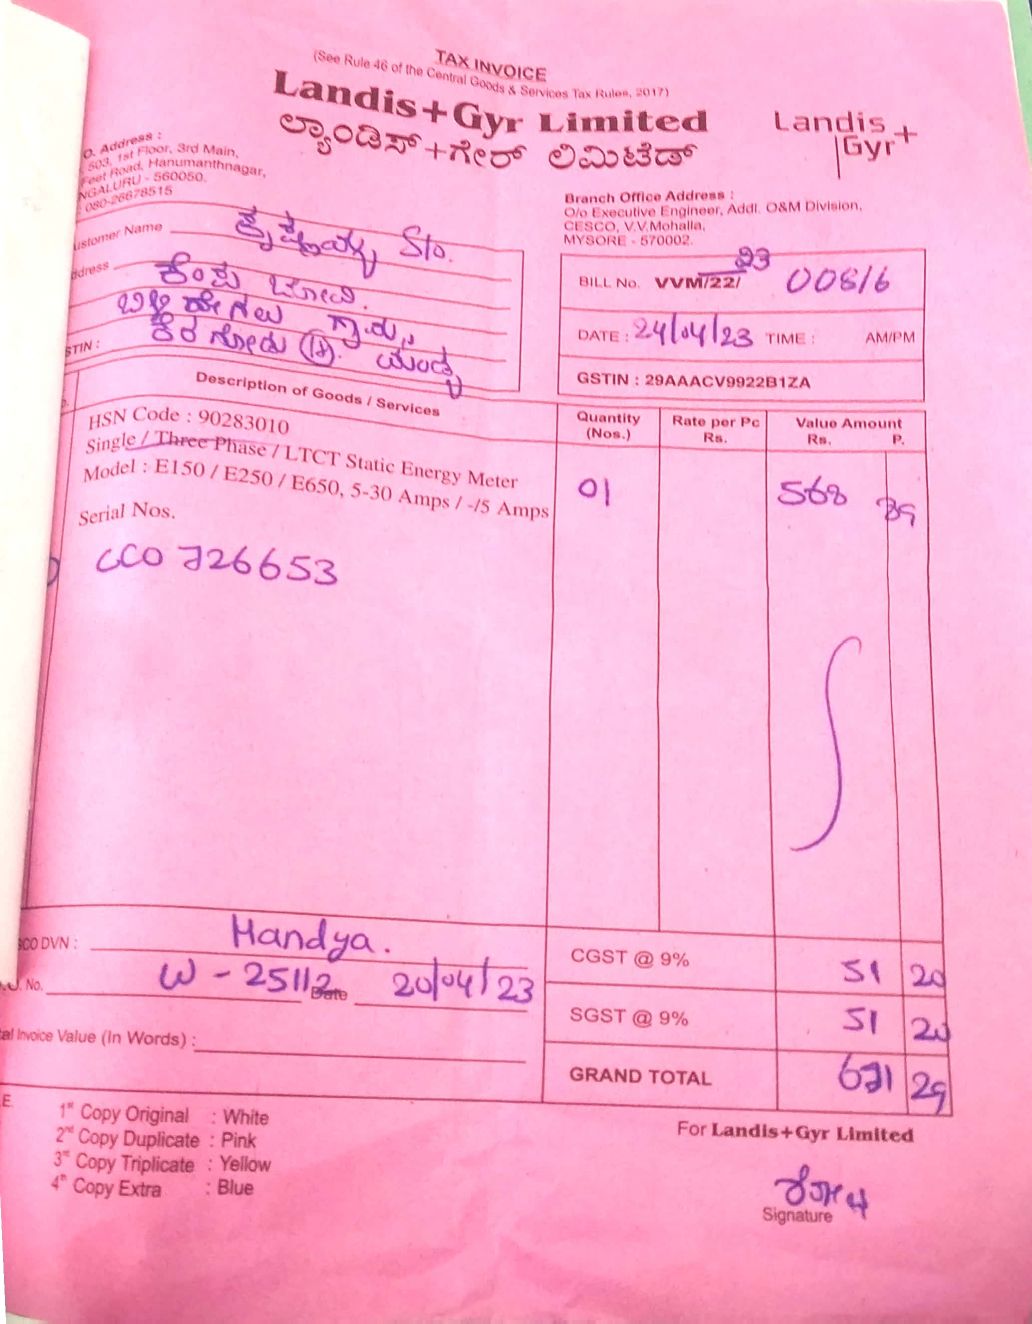 TAX INVOICE
(See Rule 46 of the Central Goods & Services Tax Rules, 2017)
Landis+Gyr Limited
ಲ್ಯಾಂಡಿಸ್+ಗೇರ್ ಲಿಮಿಟೆಡ್
Landis
Gyr+
O. Address :
503, 1st Floor, 3rd Main,
Feet Road, Hanumanthnagar,
NGALURU - 560050.
080-26678515
Branch Office Address :
O/o Executive Engineer, Addl. O&M Division,
CESCO, V.V.Mohalla,
MYSORE - 570002.
ustomer Name S/o.
ddress
STIN :
BILL No. VVM/22/ 23 00816
DATE : 24/04/23 TIME : AM/PM
GSTIN : 29AAACV9922B1ZA
Description of Goods / Services
Quantity (Nos.)
Rate per Pc Rs.
Value Amount Rs. P.
HSN Code : 90283010
Single / Three Phase / LTCT Static Energy Meter
Model : E150 / E250 / E650, 5-30 Amps / -/5 Amps
01 568 89
Serial Nos.
CCO 726653
SCO DVN : Mandya.
No. W - 25112 Date 20/04/23
tal Invoice Value (In Words) :
CGST @ 9% 51 20
SGST @ 9% 51 20
GRAND TOTAL 671 29
E.
1st Copy Original : White
2nd Copy Duplicate : Pink
3rd Copy Triplicate : Yellow
4th Copy Extra : Blue
For Landis+Gyr Limited
Signature